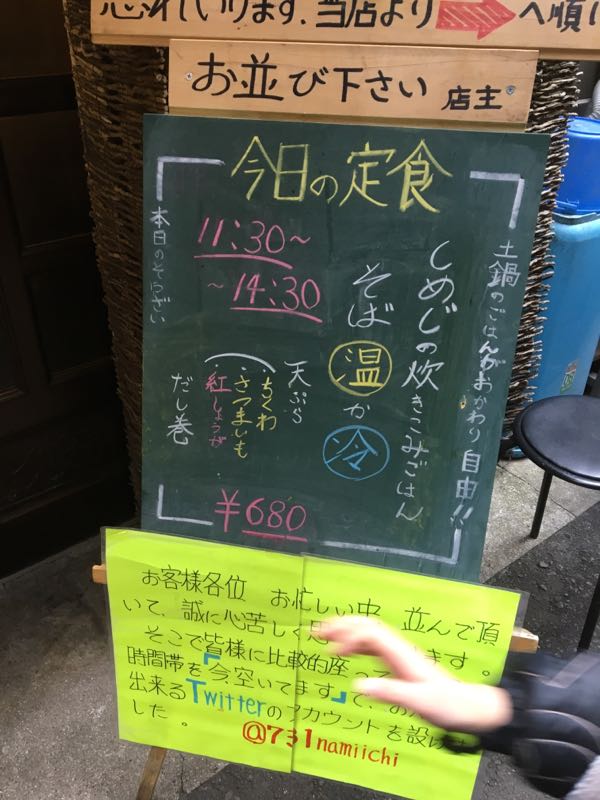 恐れいります、当店より → へ順に
お並び下さい 店主
今日の定食
土鍋のごはんがおかわり自由!!
しめじの炊きこみごはん
そば 温 か 冷
11:30〜
〜14:30
天ぷら
・ちくわ
・さつまいも
・紅しょうが
だし巻
本日のそうざい
¥680
お客様各位 お忙しい中、並んで頂
いて、誠に心苦しく思 ます。
そこで皆様に比較的座って
時間帯を「今、空いてます」で、お
出来るTwitterのアカウントを設け
した。
@731namiichi